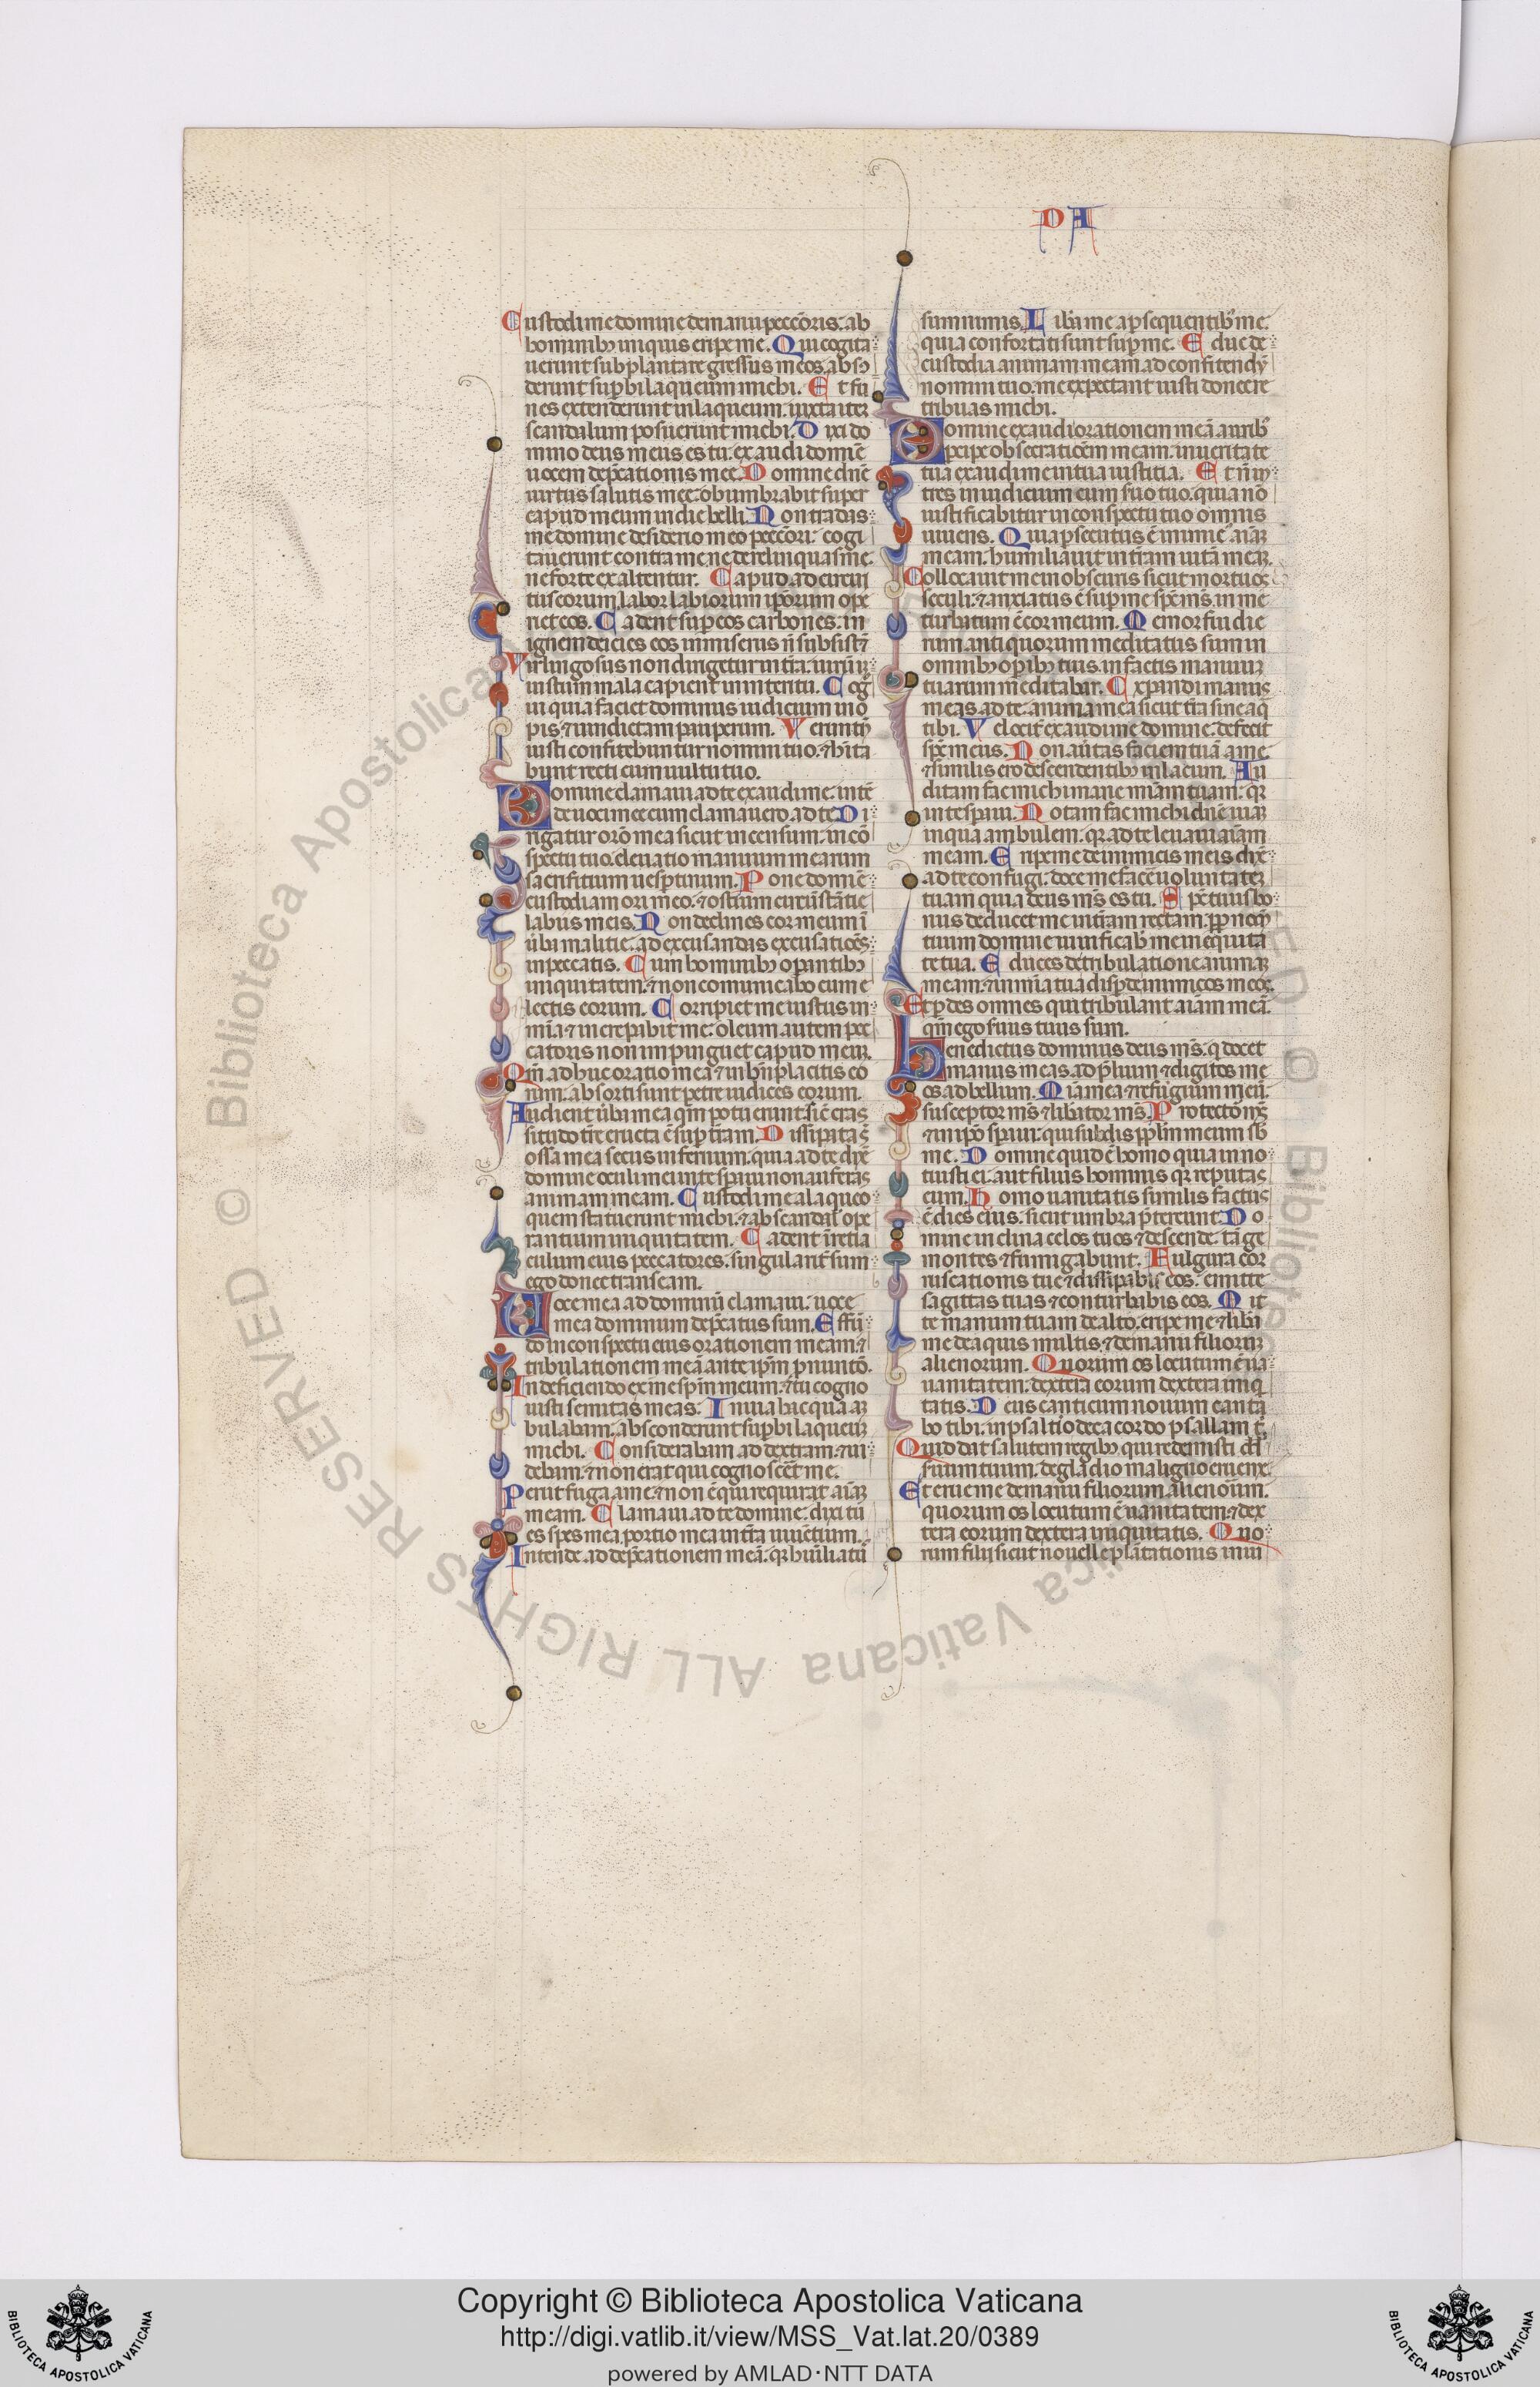 D A
Custodi me domine de manu peccōris: ab
hominibꝫ iniquis eripe me. Qui cogita
uerunt subplantare gressus meos, abscō
derunt supbi laqueum michi. Et fu
nes extenderunt in laqueum. iuxta iter
scandalum posuerunt michi. Dixi do
mino deus meus es tu: exaudi domīe
uocem dep̄cationis mee. Domine dn̄e
uirtus salutis mee: obumbrabit super
capud meum in die belli. Non tradas
me domine desiderio meo peccōri: cogi
tauerunt contra me ne derelinquas me
ne forte exaltentur. Capud ad circui
tus eorum. labor labiorum ip̄orum ope
riet eos. Cadent sup eos carbones. in
ignem deicies eos in miseriis n̄ subsistēt
Vir lingosus non dirigetur in tr̄a. uirū in
iustum mala capient in interitu. Cog
ui quia faciet dominus iudicium ino
pis. ⁊ uindictam pauperum. Verumtn̄
iusti confitebuntur nomini tuo. ⁊ hīta
bunt recti cum uultu tuo.
Domine clamaui ad te exaudi me: intē
de uoci mee cum clamauero ad te. Di
rigatur orō mea sicut incensum: in cō
spectu tuo. eleuatio manuum mearum
sacrifitium uesptinum. Pone domīe
custodiam ori meo. ⁊ ostium circūstātie
labiis meis. Non declines cor meum ī
ūba malitie. ad excusandas excusatiōes
in peccatis. Cum hominibꝫ opantibꝫ
iniquitatem. ⁊ non comunicabo cum e
lectis eorum. Corripiet me iustus in
mīa ⁊ increpabit me: oleum autem pec
catoris non inpinguet capud meum.
Qm̄ adhuc oratio mea ⁊ in bn̄placitis eo
rum. absorti sunt petre iudices eorum.
Audient ūba mea qm̄ potuerunt: sic̄ cras
situdo tr̄e eructa ē sup tr̄am. Dissipata s̄
ossa mea secus infernum. quia ad te dn̄e
domine oculi mei in te spaui non auferas
animam meam. Custodi me a laqueo
quem statuerunt michi. ⁊ ab scandal̓ ope
rantium iniquitatem. Cadent ī retia
culum eius peccatores. singulariter sum
ego donec transeam.
Voce mea ad dominū clamaui. uoce
mea dominum dep̄catus sum. Effū
do in conspectu eius orationem meam. ⁊
tribulationem meā ante ip̄m p̄nuntio.
In deficiendo ex me sp̄m meum. ⁊ tu cogno
uisti semitas meas. In uia hac qua am
bulabam. absconderunt supbi laqueum
michi. Considerabam ad dextram. ⁊ ui
debam. ⁊ non erat qui cognosceret me.
Periit fuga a me. ⁊ non ē qui requirat aīam
meam. Clamaui ad te domine. dixi tu
es spes mea. portio mea in tr̄a uiuētium.
Intende ad dep̄cationem meā. qr̄ humiliatus
sum nimis. Libera me a psequentibꝫ me.
quia confortati sunt sup me. Educ de
custodia animam meam ad confitendū
nomini tuo. me expectant iusti donec re
tribuas michi.
Domine exaudi orationem meā. auribꝫ
pcipe obsecratiōem meam. in ueritate
tua exaudi me in tua iustitia. Et n̄ in
tres in iudicium cum suo tuo. quia nō
iustificabitur in conspectu tuo omnis
uiuens. Quia psecutus ē inimic̄ aīam
meam. humiliauit in tr̄am uitā meam.
Collocauit me in obscuris sicut mortuos
seculi: ⁊ anxiatus ē sup me spc̄ ms̄. in me
turbatum ē cor meum. Memor fui die
rum antiquorum meditatus sum in
omnibꝫ opibꝫ tuis. in factis manuum
tuarum meditabar. Expandi manus
meas ad te. anima mea sicut tr̄a sine aq̄
tibi. Velociter exaudi me domine. defecit
spc̄ meus. Non auertas faciem tuā a me
⁊ similis ero descendentibꝫ in lacum. Au
ditam fac michi mane mīam tuam: qr̄
in te spaui. Notam fac michi dn̄e uiam
in qua ambulem. qr̄ ad te leuaui aīam
meam. Eripe me de inimicis meis dn̄e
ad te confugi. doce me facere uoluntatem
tuam quia deus ms̄ es tu. Spc̄ tuus bo
nus deducet me in tr̄am rectam. pp nomē
tuum domine uiuificab̄ me in equita
te tua. Educes de tribulatione animam
meam. ⁊ in mīa tua dispdes inimicos meos.
Et pdes omnes qui tribulant aīam meā.
qm̄ ego suus tuus sum.
Benedictus dominus deus ms̄. q̄ docet
manus meas ad p̄lium. ⁊ digitos me
os ad bellum. Mīa mea ⁊ refugium meū.
susceptor ms̄ ⁊ libator ms̄. Protector ms̄
⁊ in ipō spaui: qui subdis pplm̄ meum sb̄
me. Domine quid ē homo quia inno
tuisti ei. aut filius hominis qr̄ reputas
eum. Homo uanitatis similis factus
ē. dies eius. sicut umbra p̄tereunt. Do
mine inclina celos tuos ⁊ descende. tāge
montes ⁊ fumigabunt. Fulgura cor
ruscationis tue ⁊ dissipabis eos: emitte
sagittas tuas ⁊ conturbibis eos. Mit
te manum tuam de alto. eripe me ⁊ libā
me de aquis multis. ⁊ de manu filiorum
alienorum. Quorum os locutum ē ua
uanitatem: dextera eorum dextera iniq̄
tatis. Deus canticum nouum canta
bo tibi. in psaltio decacordo psallam t̄.
Qui dat salutem regibꝫ. qui redemisti dd̄
suum tuum. de gladio maligno erue me
Et erue me de manu filiorum alienorum.
quorum os locutum ē uanitatem. ⁊ dex
tera eorum dextera iniquitatis. Quo
rum filij sicut nouelle plātationis in iu
© Biblioteca Apostolica Vaticana ALL RIGHTS RESERVED
Copyright © Biblioteca Apostolica Vaticana
http://digi.vatlib.it/view/MSS_Vat.lat.20/0389
powered by AMLAD·NTT DATA
BIBLIOTECA APOSTOLICA VATICANA
BIBLIOTECA APOSTOLICA VATICANA